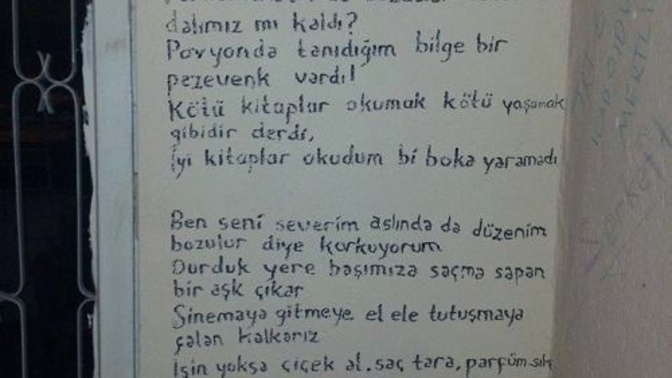 dalımız mı kaldı?
Pavyonda tanıdığım bilge bir
pezevenk vardı!
Kötü kitaplar okumak kötü yaşamak
gibidir derdi,
İyi kitaplar okudum bi boka yaramadı
Ben seni severim aslında da düzenim
bozulur diye korkuyorum
Durduk yere başımıza saçma sapan
bir aşk çıkar
Sinemaya gitmeye el ele tutuşmaya
falan kalkarız
İşin yoksa çiçek al, saç tara, parfüm sık